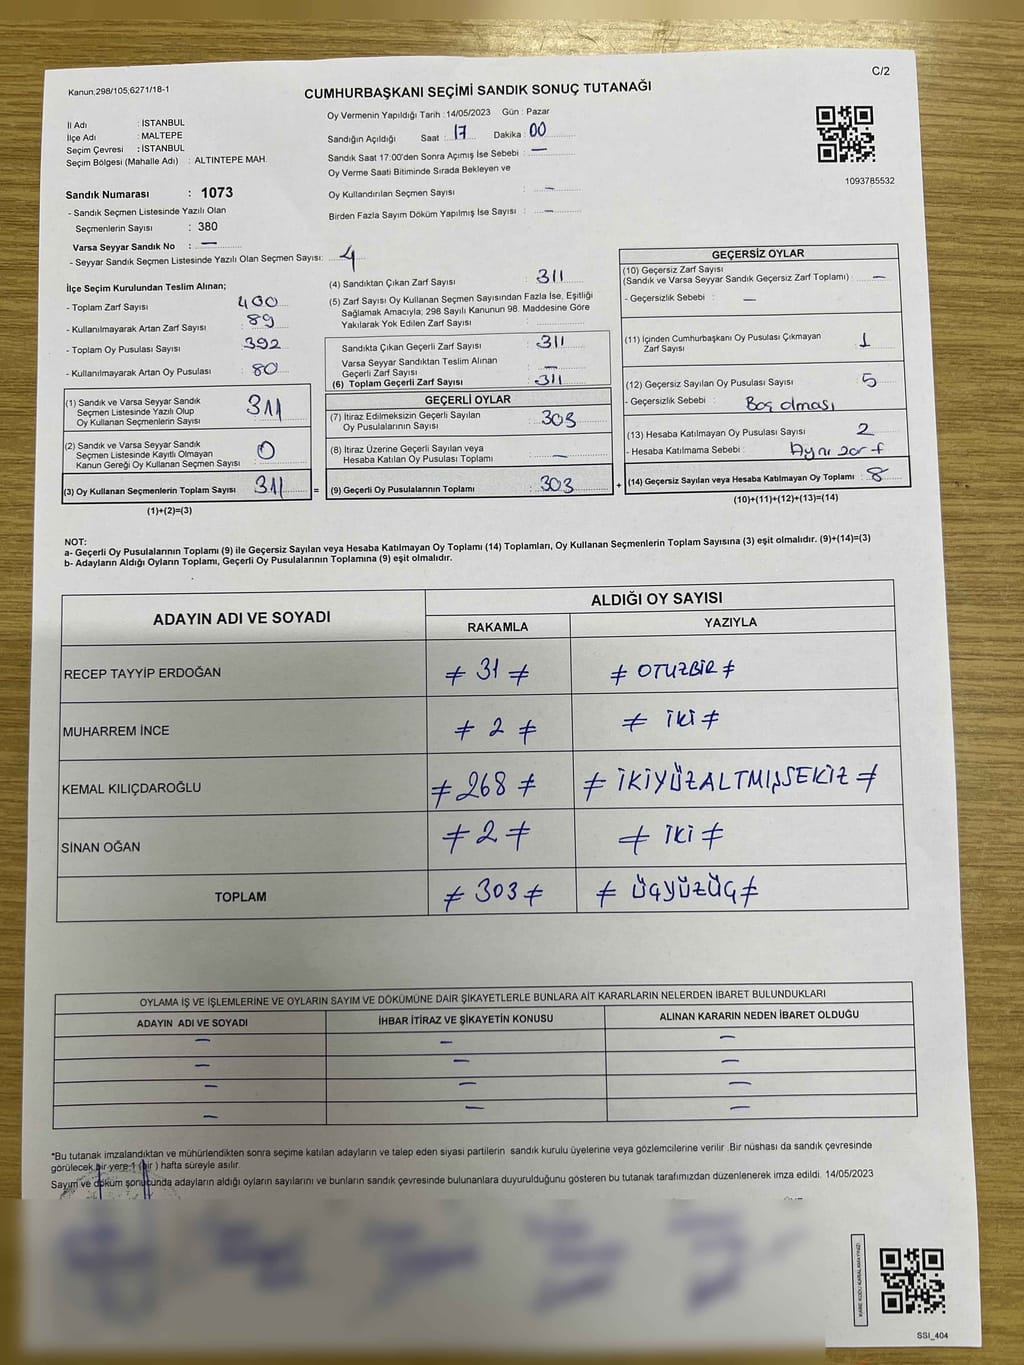 C/2
Kanun;298/105;6271/18-1
CUMHURBAŞKANI SEÇİMİ SANDIK SONUÇ TUTANAĞI
İl Adı : İSTANBUL
İlçe Adı : MALTEPE
Seçim Çevresi : İSTANBUL
Seçim Bölgesi (Mahalle Adı) : ALTINTEPE MAH.
Sandık Numarası : 1073
- Sandık Seçmen Listesinde Yazılı Olan
Seçmenlerin Sayısı : 380
Varsa Seyyar Sandık No : —
- Seyyar Sandık Seçmen Listesinde Yazılı Olan Seçmen Sayısı: 4
Oy Vermenin Yapıldığı Tarih : 14/05/2023 Gün : Pazar
Sandığın Açıldığı Saat : 17 Dakika : 00
Sandık Saat 17:00'den Sonra Açımış İse Sebebi : —
Oy Verme Saati Bitiminde Sırada Bekleyen ve
Oy Kullandırılan Seçmen Sayısı : —
Birden Fazla Sayım Döküm Yapılmış İse Sayısı : —
1093785532
İlçe Seçim Kurulundan Teslim Alınan;
- Toplam Zarf Sayısı : 400
- Kullanılmayarak Artan Zarf Sayısı : 89
- Toplam Oy Pusulası Sayısı : 392
- Kullanılmayarak Artan Oy Pusulası : 80
(1) Sandık ve Varsa Seyyar Sandık
Seçmen Listesinde Yazılı Olup
Oy Kullanan Seçmenlerin Sayısı : 311
(2) Sandık ve Varsa Seyyar Sandık
Seçmen Listesinde Kayıtlı Olmayan
Kanun Gereği Oy Kullanan Seçmen Sayısı : 0
(3) Oy Kullanan Seçmenlerin Toplam Sayısı : 311 =
(1)+(2)=(3)
(4) Sandıktan Çıkan Zarf Sayısı : 311
(5) Zarf Sayısı Oy Kullanan Seçmen Sayısından Fazla İse, Eşitliği
Sağlamak Amacıyla; 298 Sayılı Kanunun 98. Maddesine Göre
Yakılarak Yok Edilen Zarf Sayısı :
Sandıkta Çıkan Geçerli Zarf Sayısı : 311
Varsa Seyyar Sandıktan Teslim Alınan
Geçerli Zarf Sayısı : —
(6) Toplam Geçerli Zarf Sayısı : 311
GEÇERLİ OYLAR
(7) İtiraz Edilmeksizin Geçerli Sayılan
Oy Pusulalarının Sayısı : 303
(8) İtiraz Üzerine Geçerli Sayılan veya
Hesaba Katılan Oy Pusulası Toplamı : —
(9) Geçerli Oy Pusulalarının Toplamı : 303 +
GEÇERSİZ OYLAR
(10) Geçersiz Zarf Sayısı
(Sandık ve Varsa Seyyar Sandık Geçersiz Zarf Toplamı) : —
- Geçersizlik Sebebi : —
(11) İçinden Cumhurbaşkanı Oy Pusulası Çıkmayan
Zarf Sayısı : 1
(12) Geçersiz Sayılan Oy Pusulası Sayısı : 5
- Geçersizlik Sebebi : Boş olması
(13) Hesaba Katılmayan Oy Pusulası Sayısı : 2
- Hesaba Katılmama Sebebi : Aynı zarf
(14) Geçersiz Sayılan veya Hesaba Katılmayan Oy Toplamı : 8
(10)+(11)+(12)+(13)=(14)
NOT:
a- Geçerli Oy Pusulalarının Toplamı (9) ile Geçersiz Sayılan veya Hesaba Katılmayan Oy Toplamı (14) Toplamları, Oy Kullanan Seçmenlerin Toplam Sayısına (3) eşit olmalıdır. (9)+(14)=(3)
b- Adayların Aldığı Oyların Toplamı, Geçerli Oy Pusulalarının Toplamına (9) eşit olmalıdır.
ADAYIN ADI VE SOYADI ALDIĞI OY SAYISI
RAKAMLA YAZIYLA
RECEP TAYYİP ERDOĞAN ≠ 31 ≠ ≠ OTUZBİR ≠
MUHARREM İNCE ≠ 2 ≠ ≠ İKİ ≠
KEMAL KILIÇDAROĞLU ≠ 268 ≠ ≠ İKİYÜZALTMIŞSEKİZ ≠
SİNAN OĞAN ≠ 2 ≠ ≠ İKİ ≠
TOPLAM ≠ 303 ≠ ≠ ÜÇYÜZÜÇ ≠
OYLAMA İŞ VE İŞLEMLERİNE VE OYLARIN SAYIM VE DÖKÜMÜNE DAİR ŞİKAYETLERLE BUNLARA AİT KARARLARIN NELERDEN İBARET BULUNDUKLARI
ADAYIN ADI VE SOYADI İHBAR İTİRAZ VE ŞİKAYETİN KONUSU ALINAN KARARIN NEDEN İBARET OLDUĞU
— — —
— — —
— — —
— — —
*Bu tutanak imzalandıktan ve mühürlendikten sonra seçime katılan adayların ve talep eden siyasi partilerin sandık kurulu üyelerine veya gözlemcilerine verilir .Bir nüshası da sandık çevresinde
görülecek bir yere 1 (bir ) hafta süreyle asılır.
Sayım ve döküm sonucunda adayların aldığı oyların sayılarını ve bunların sandık çevresinde bulunanlara duyurulduğunu gösteren bu tutanak tarafımızdan düzenlenerek imza edildi. 14/05/2023
SSI_404